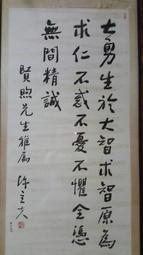 大勇生於大智求智原為
求仁不惑不憂不懼全憑
無間精誠
賢煦先生雅屬
陳立夫